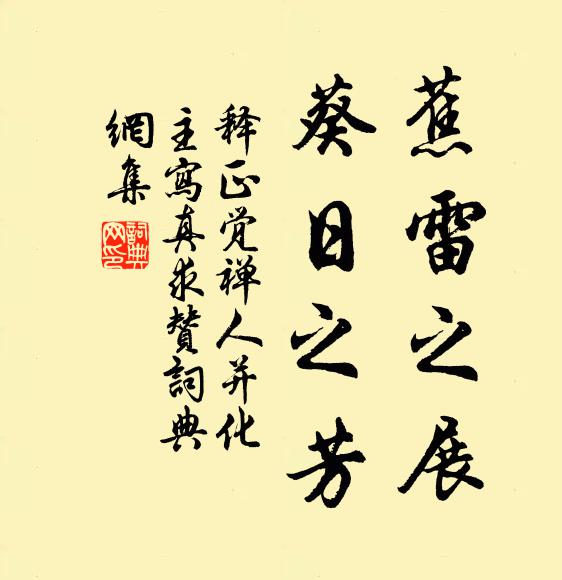 蕉雷之展
葵日之芳
释正觉禅人并化
主寫真求赞詞典
網集
詞典網印